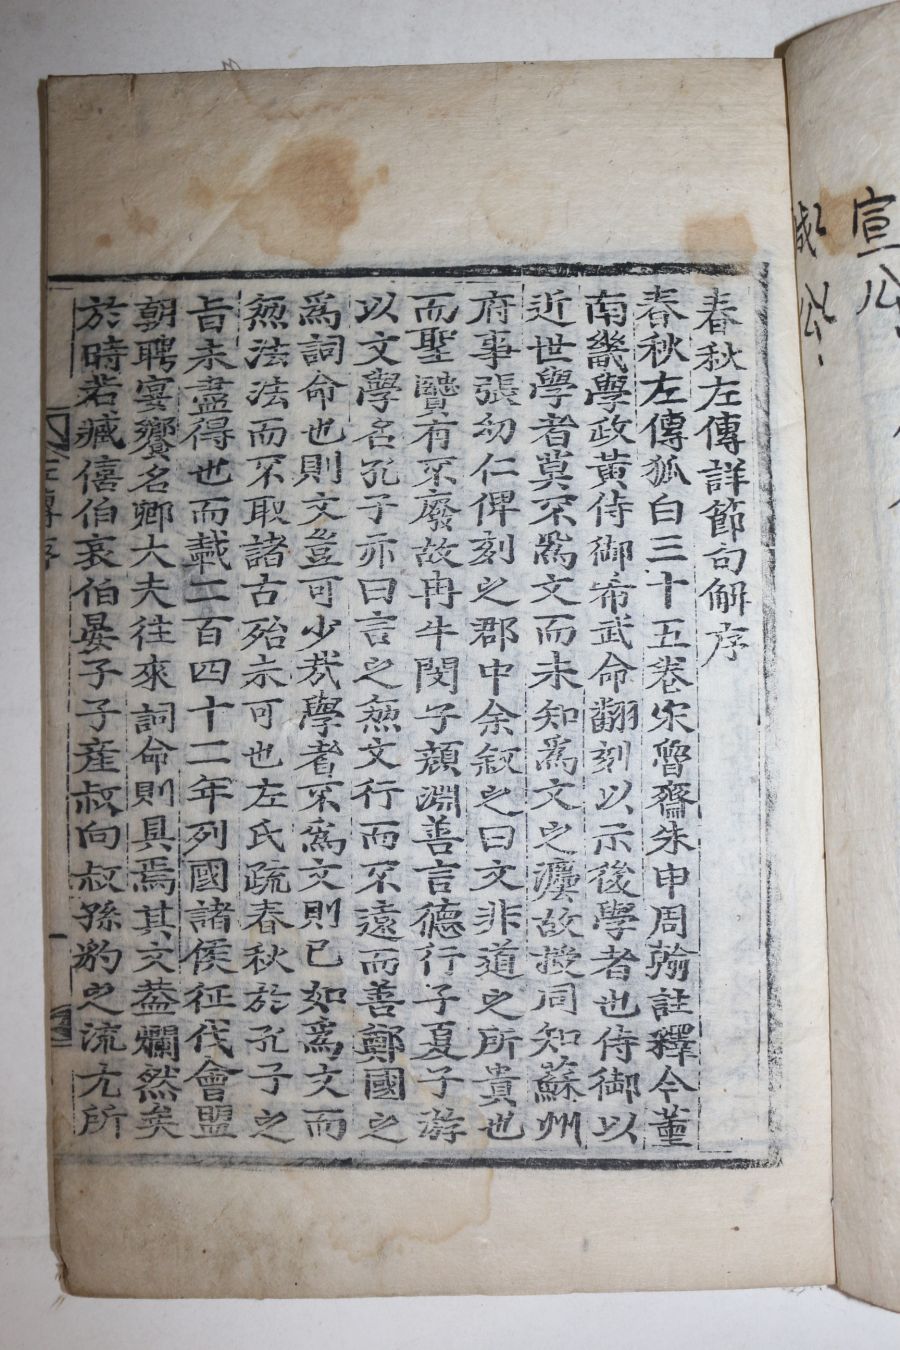 宣公
成公
春秋左傳詳節句解序
春秋左傳狐白三十五卷宋魯齋朱申周翰註釋今董
南畿學政黃侍御希武命翻刻以示後學者也侍御以
近世學者莫不爲文而未知爲文之灋故授同知蘇州
府事張幼仁俾刻之郡中余叙之曰文非道之所貴也
而聖贒有不廢故冉牛閔子顔淵善言德行子夏子游
以文學名孔子亦曰言之無文行而不遠而善鄭國之
爲詞命也則文豈可少哉學者不爲文則已如爲文而
無法法而不取諸古殆未可也左氏疏春秋於孔子之
旨未盡得也而載二百四十二年列國諸侯征伐會盟
朝聘宴饗名卿大夫往來詞命則具焉其文蓋爛然矣
於時若臧僖伯哀伯晏子子產叔向叔孫豹之流尢所
左傳序
一